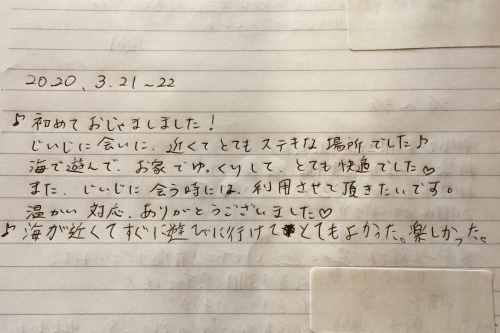 2020.3.21~22
♪初めておじゃましました!
じいじに会いに、近くてとてもステキな場所でした♪
海で遊んで、お家でゆっくりして、とても快適でした♡
また、じいじに会う時には、利用させて頂きたいです。
温かい対応、ありがとうございました♡
♪海が近くてすぐに遊びに行けてとてもよかった。楽しかった。